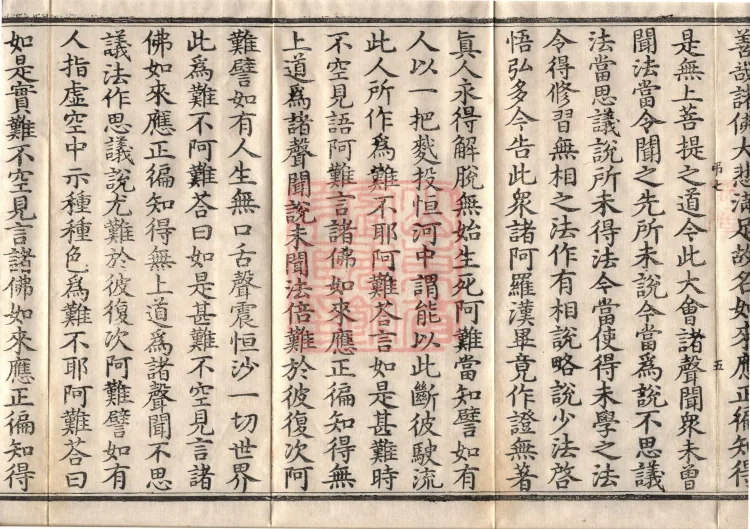 善哉諸佛大悲滿足故名如來應正徧知得
弟七 五
是無上菩提之道今此大會諸聲聞衆未曾
聞法當令聞之先所未說今當爲說不思議
法當思議說所未得法今當使得未學之法
令得修習無相之法作有相說略說少法啓
悟弘多今告此衆諸阿羅漢畢竟作證無著
眞人永得解脫無始生死阿難當知譬如有
人以一把麨投恒河中謂能以此斷彼駛流
此人所作爲難不耶阿難荅言如是甚難時
不空見語阿難言諸佛如來應正徧知得無
上道爲諸聲聞說未聞法倍難於彼復次阿
難譬如有人生無口舌聲震恒沙一切世界
此爲難不阿難荅曰如是甚難不空見言諸
佛如來應正徧知得無上道爲諸聲聞不思
議法作思議說尤難於彼復次阿難譬如有
人指虛空中示種種色爲難不耶阿難荅曰
如是實難不空見言諸佛如來應正徧知得